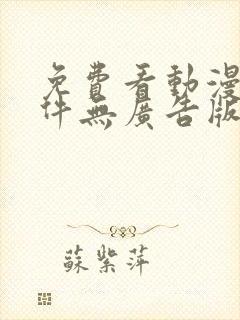 免費看動漫
件無廣告版
蘇紫萍